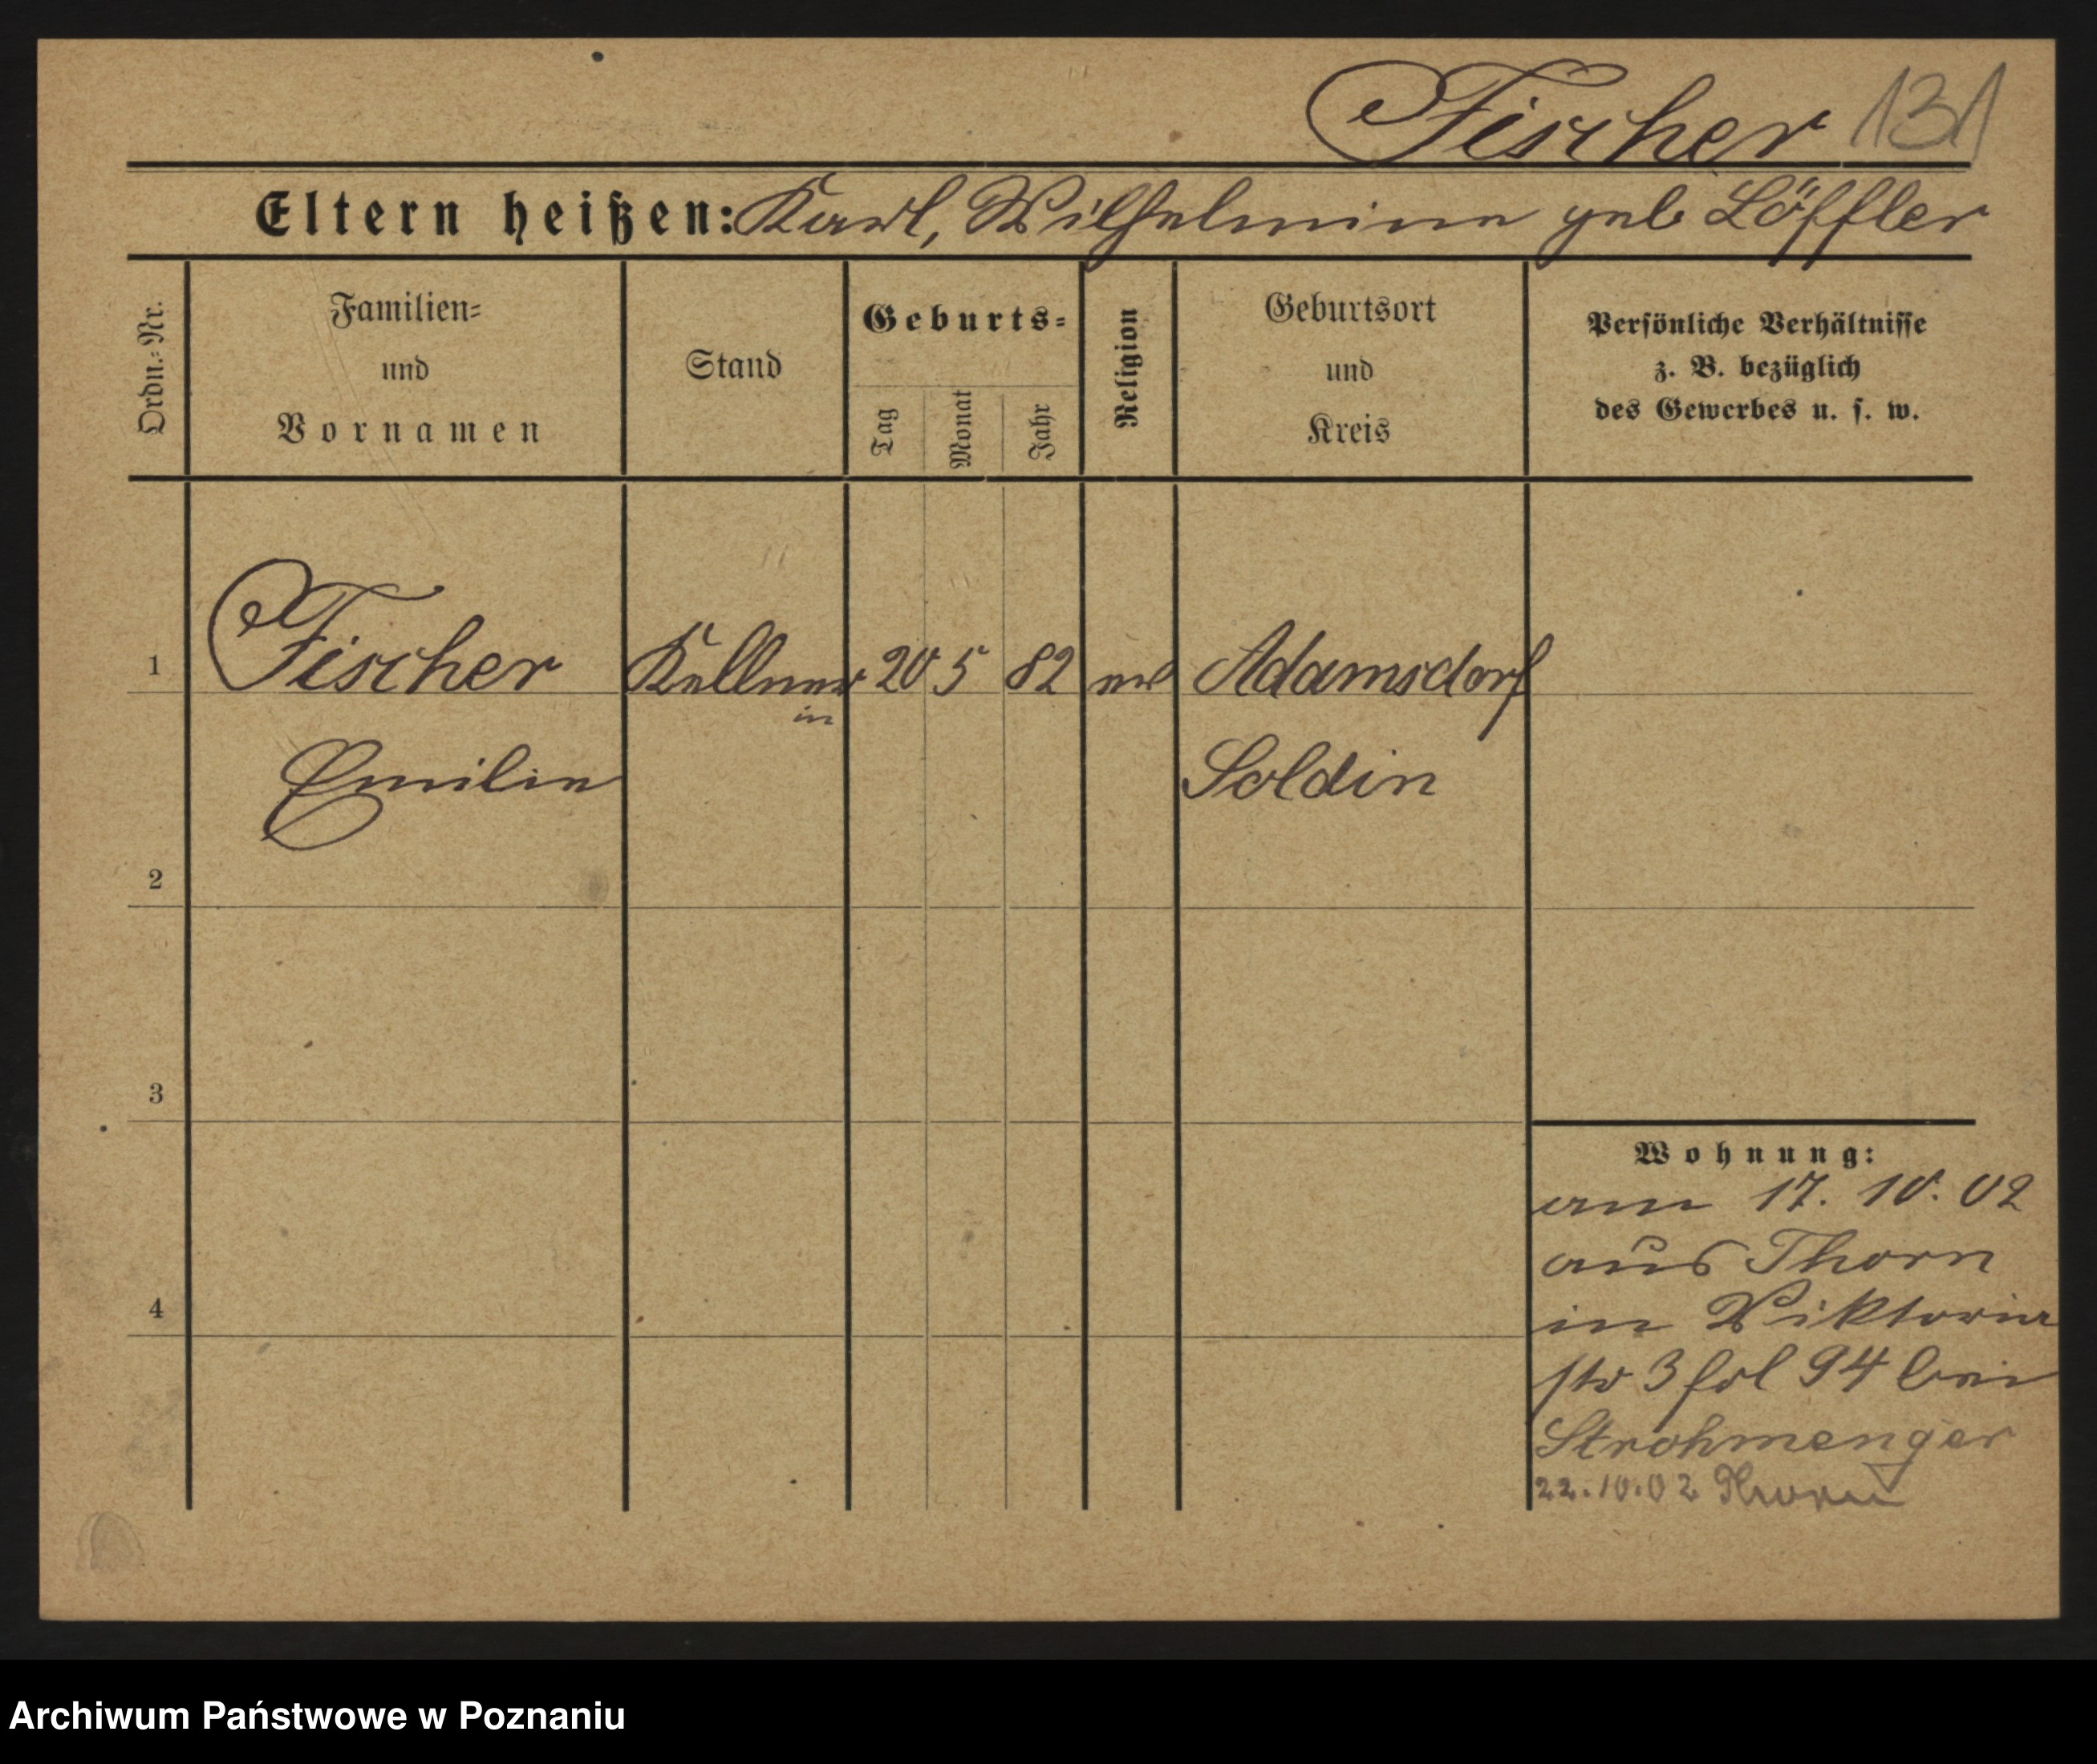 Fischer 131
Eltern heißen: Karl, Wilhelmine geb Löffler
Ordn.-Nr.
Familien-
und
Vornamen
Stand
Geburts-
Tag
Monat
Jahr
Religion
Geburtsort
und
Kreis
Persönliche Verhältnisse
z. B. bezüglich
des Gewerbes u. s. w.
1 Fischer Kellner 20 5 82 ev Adamsdorf
in
Emilie Soldin
2
3
4
Wohnung:
am 17. 10. 02
aus Thorn
in Viktoria
str 3 fol 94 bei
Strohmenger
22.10.02 Thorn
Archiwum Państwowe w Poznaniu